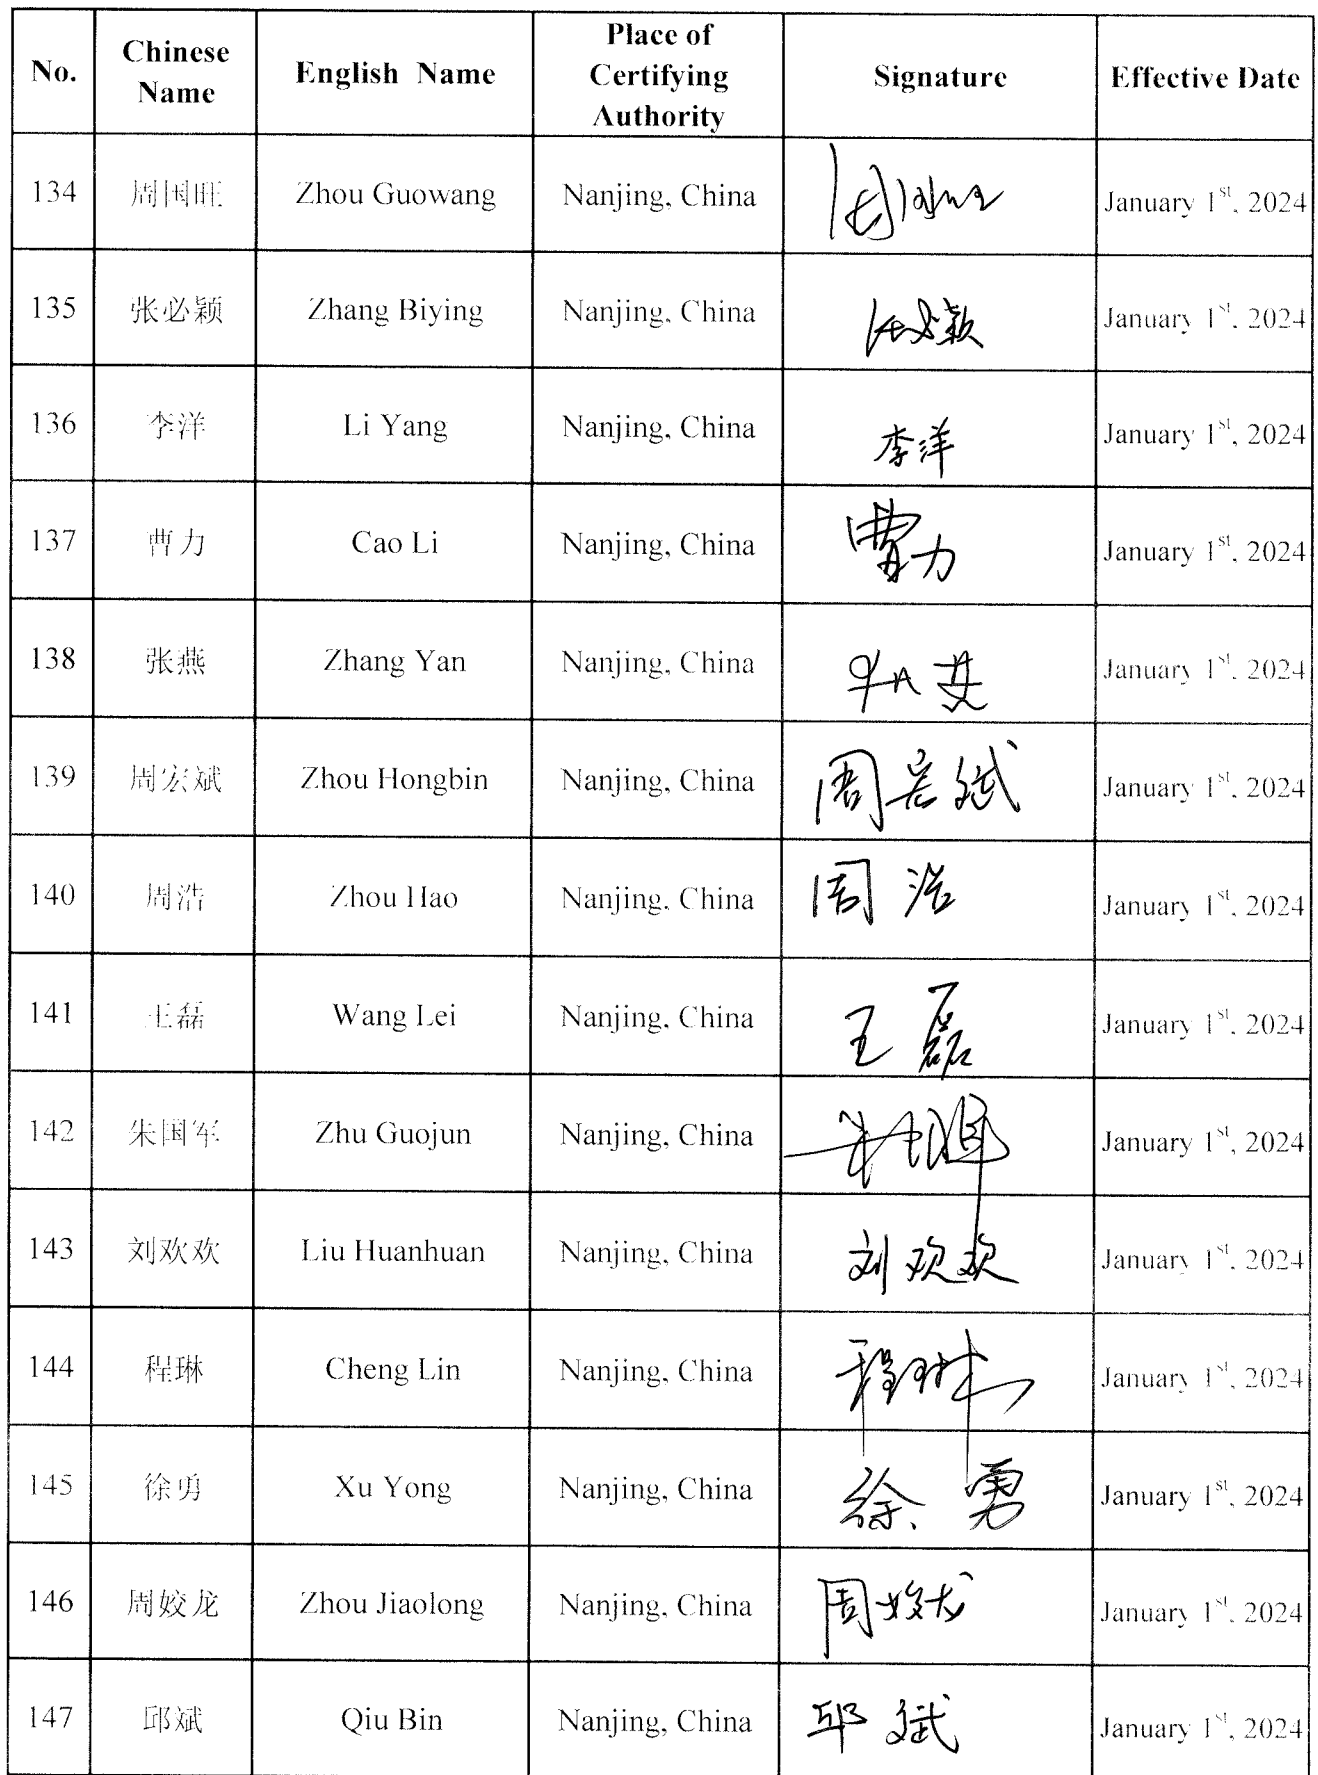 No. Chinese Name English Name Place of Certifying Authority Signature Effective Date
134 周国旺 Zhou Guowang Nanjing, China January 1st, 2024
135 张必颖 Zhang Biying Nanjing, China January 1st, 2024
136 李洋 Li Yang Nanjing, China 李洋 January 1st, 2024
137 曹力 Cao Li Nanjing, China 曹力 January 1st, 2024
138 张燕 Zhang Yan Nanjing, China January 1st, 2024
139 周宏斌 Zhou Hongbin Nanjing, China 周宏斌 January 1st, 2024
140 周浩 Zhou Hao Nanjing, China 周浩 January 1st, 2024
141 王磊 Wang Lei Nanjing, China 王磊 January 1st, 2024
142 朱国军 Zhu Guojun Nanjing, China January 1st, 2024
143 刘欢欢 Liu Huanhuan Nanjing, China 刘欢欢 January 1st, 2024
144 程琳 Cheng Lin Nanjing, China 程琳 January 1st, 2024
145 徐勇 Xu Yong Nanjing, China 徐勇 January 1st, 2024
146 周姣龙 Zhou Jiaolong Nanjing, China 周姣龙 January 1st, 2024
147 邱斌 Qiu Bin Nanjing, China 邱斌 January 1st, 2024